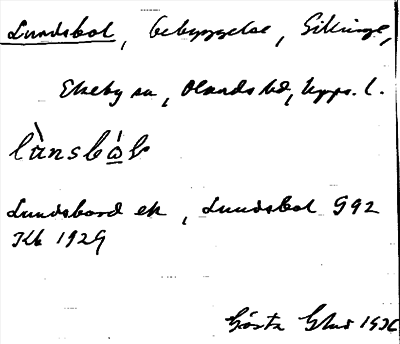 Lundsbol, bebyggelse, Sikinge,
Ekeby sn, Olands hd, Upps. l.
Lundsbord ek, Lundsbol G92
Kbl 1929
Gösta Glad 1936